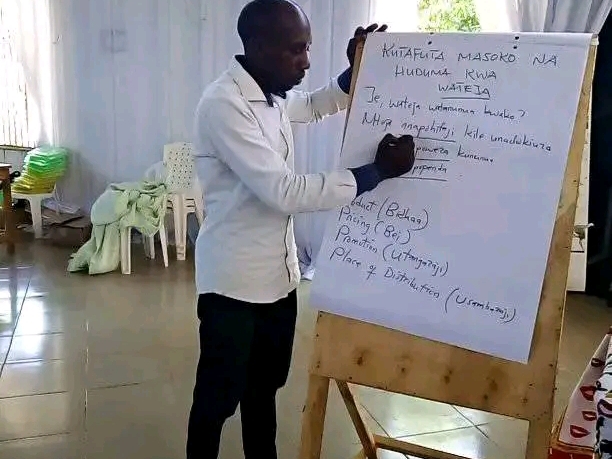 KUTAFUTA MASOKO NA
HUDUMA KWA
WATEJA
Je, wateja watanunua kwako?
anapohitaji kile unachokiuza
kununua

Pricing (Bei)
Promotion (Utangazaji)
Place of Distribution (Usambazaji)